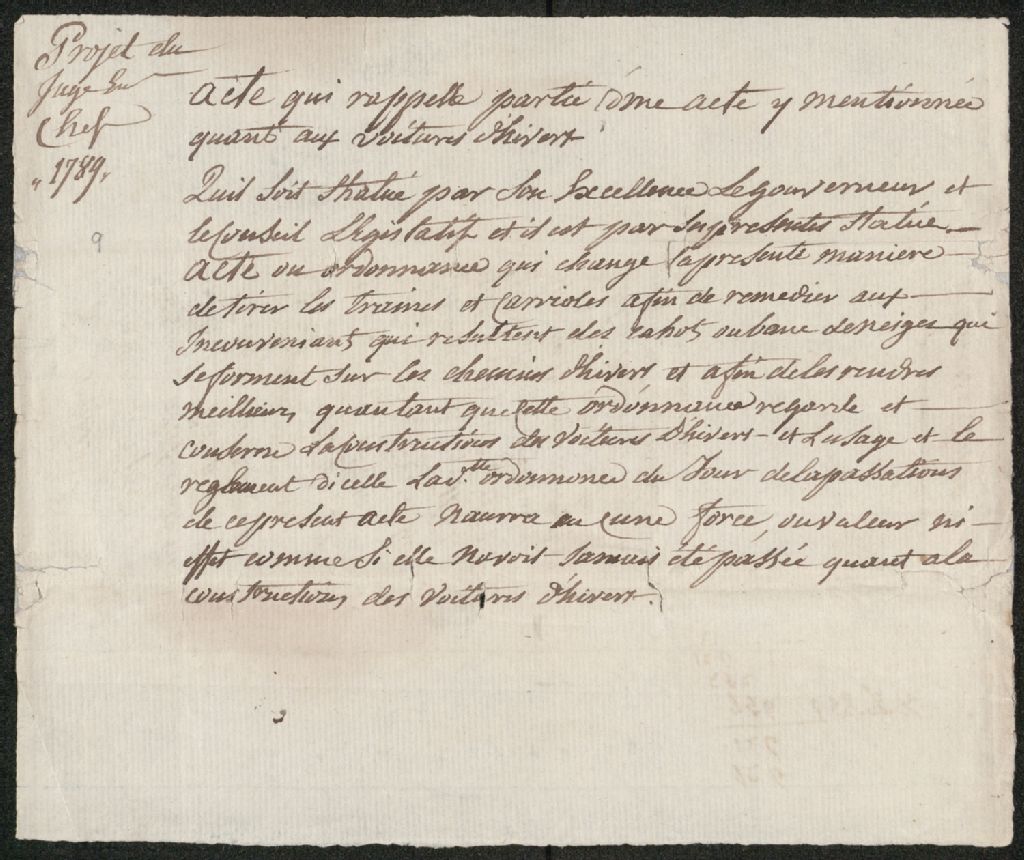 Projet du
Juge En
Chef
"1789"
Acte qui rappelle partie d'une acte y mentionnée
quant aux voitures d'hivert
Quil soit statué par Son Excellence Le gouverneur et
le Conseil Législatif et il est par Ses presentes statué
Acte ou ordonnance qui change la presente maniere
de tirer les traines et Carrioles afin de remedier aux
Inconveniants qui resultent des cahots ou banc de neiges qui
se forment sur les chemins d'hivert et afin de les rendres
meillieur, quantant que cette ordonnance regarde et
conserne La Constructions des voitures d'hivert et Lusage et le
reglement dicelle Lad.tte ordonnonce du Jour de la passations
de ce present acte Naurra aucune force, ou valeur ni
effet comme Si elle Navoit Jamais été passée quant a la
constructions des voitures d'hivert.
9